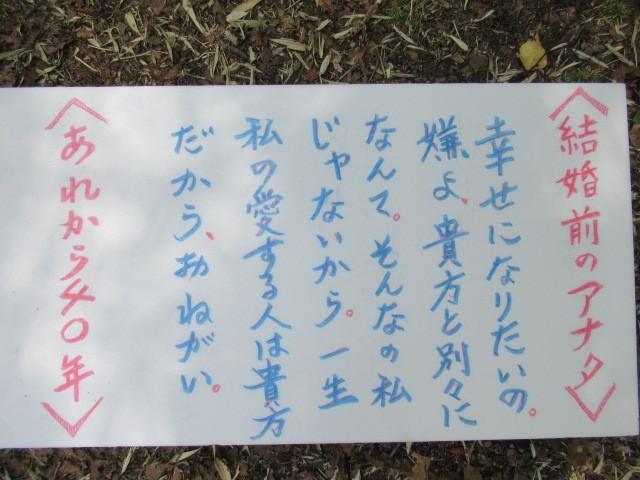 〈結婚前のアナタ〉
幸せになりたいの。
嫌よ、貴方と別々に
なんて。そんなの私
じゃないから。一生
私の愛する人は貴方
だから、おねがい。
〈あれから40年〉